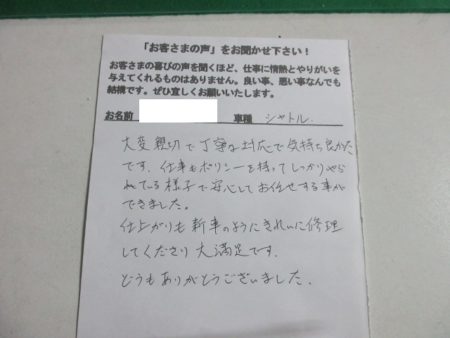 「お客さまの声」をお聞かせ下さい！
お客さまの喜びの声を聞くほど、仕事に情熱とやりがいを
与えてくれるものはありません。良い事、悪い事なんでも
結構です。ぜひ宜しくお願いいたします。
お名前 車種 シャトル.
大変親切で丁寧な対応で気持ち良かった
です。仕事もポリシーを持ってしっかりやら
れている様子で安心してお任せする事が
できました。
仕上がりも新車のようにきれいに修理
してくださり大満足です。
どうもありがとうございました。